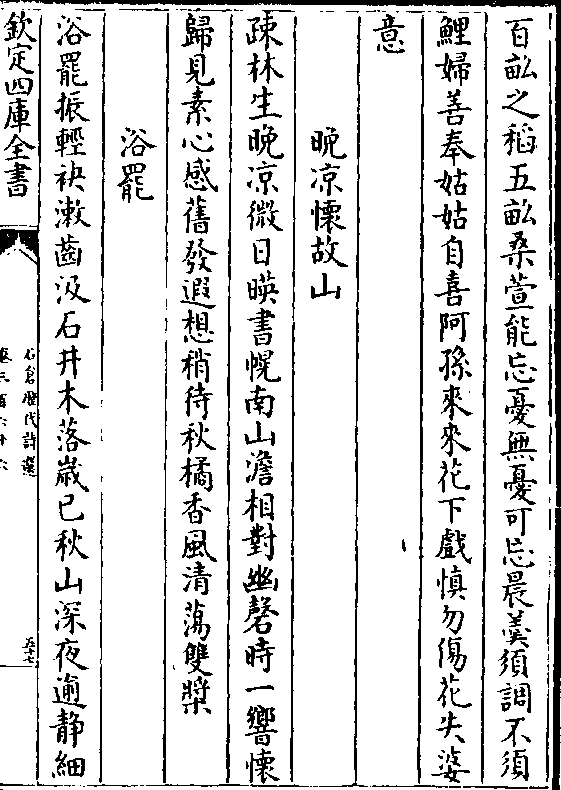 百畝之稻五畝桑萱能忘憂無憂可忘晨羮須調不須
鯉婦善奉姑姑自喜阿孫來來花下戲慎勿傷花失婆
意
晚凉懷故山
疎林生晚凉微日暎書幌南山澹相對幽磬時一響懷
歸見素心感舊發遐想稍待秋橘香風清蕩雙槳
浴罷
浴罷振輕袂漱齒汲石井木落歲已秋山深夜逾静細
欽定四庫全書
石倉歷代詩選
卷三百六十六
五十七